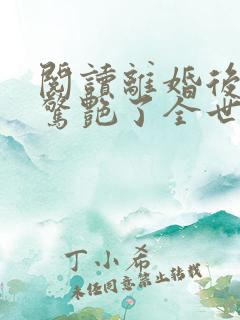 閱讀離婚後
驚艷了全世
丁小希
未经同意禁止转载